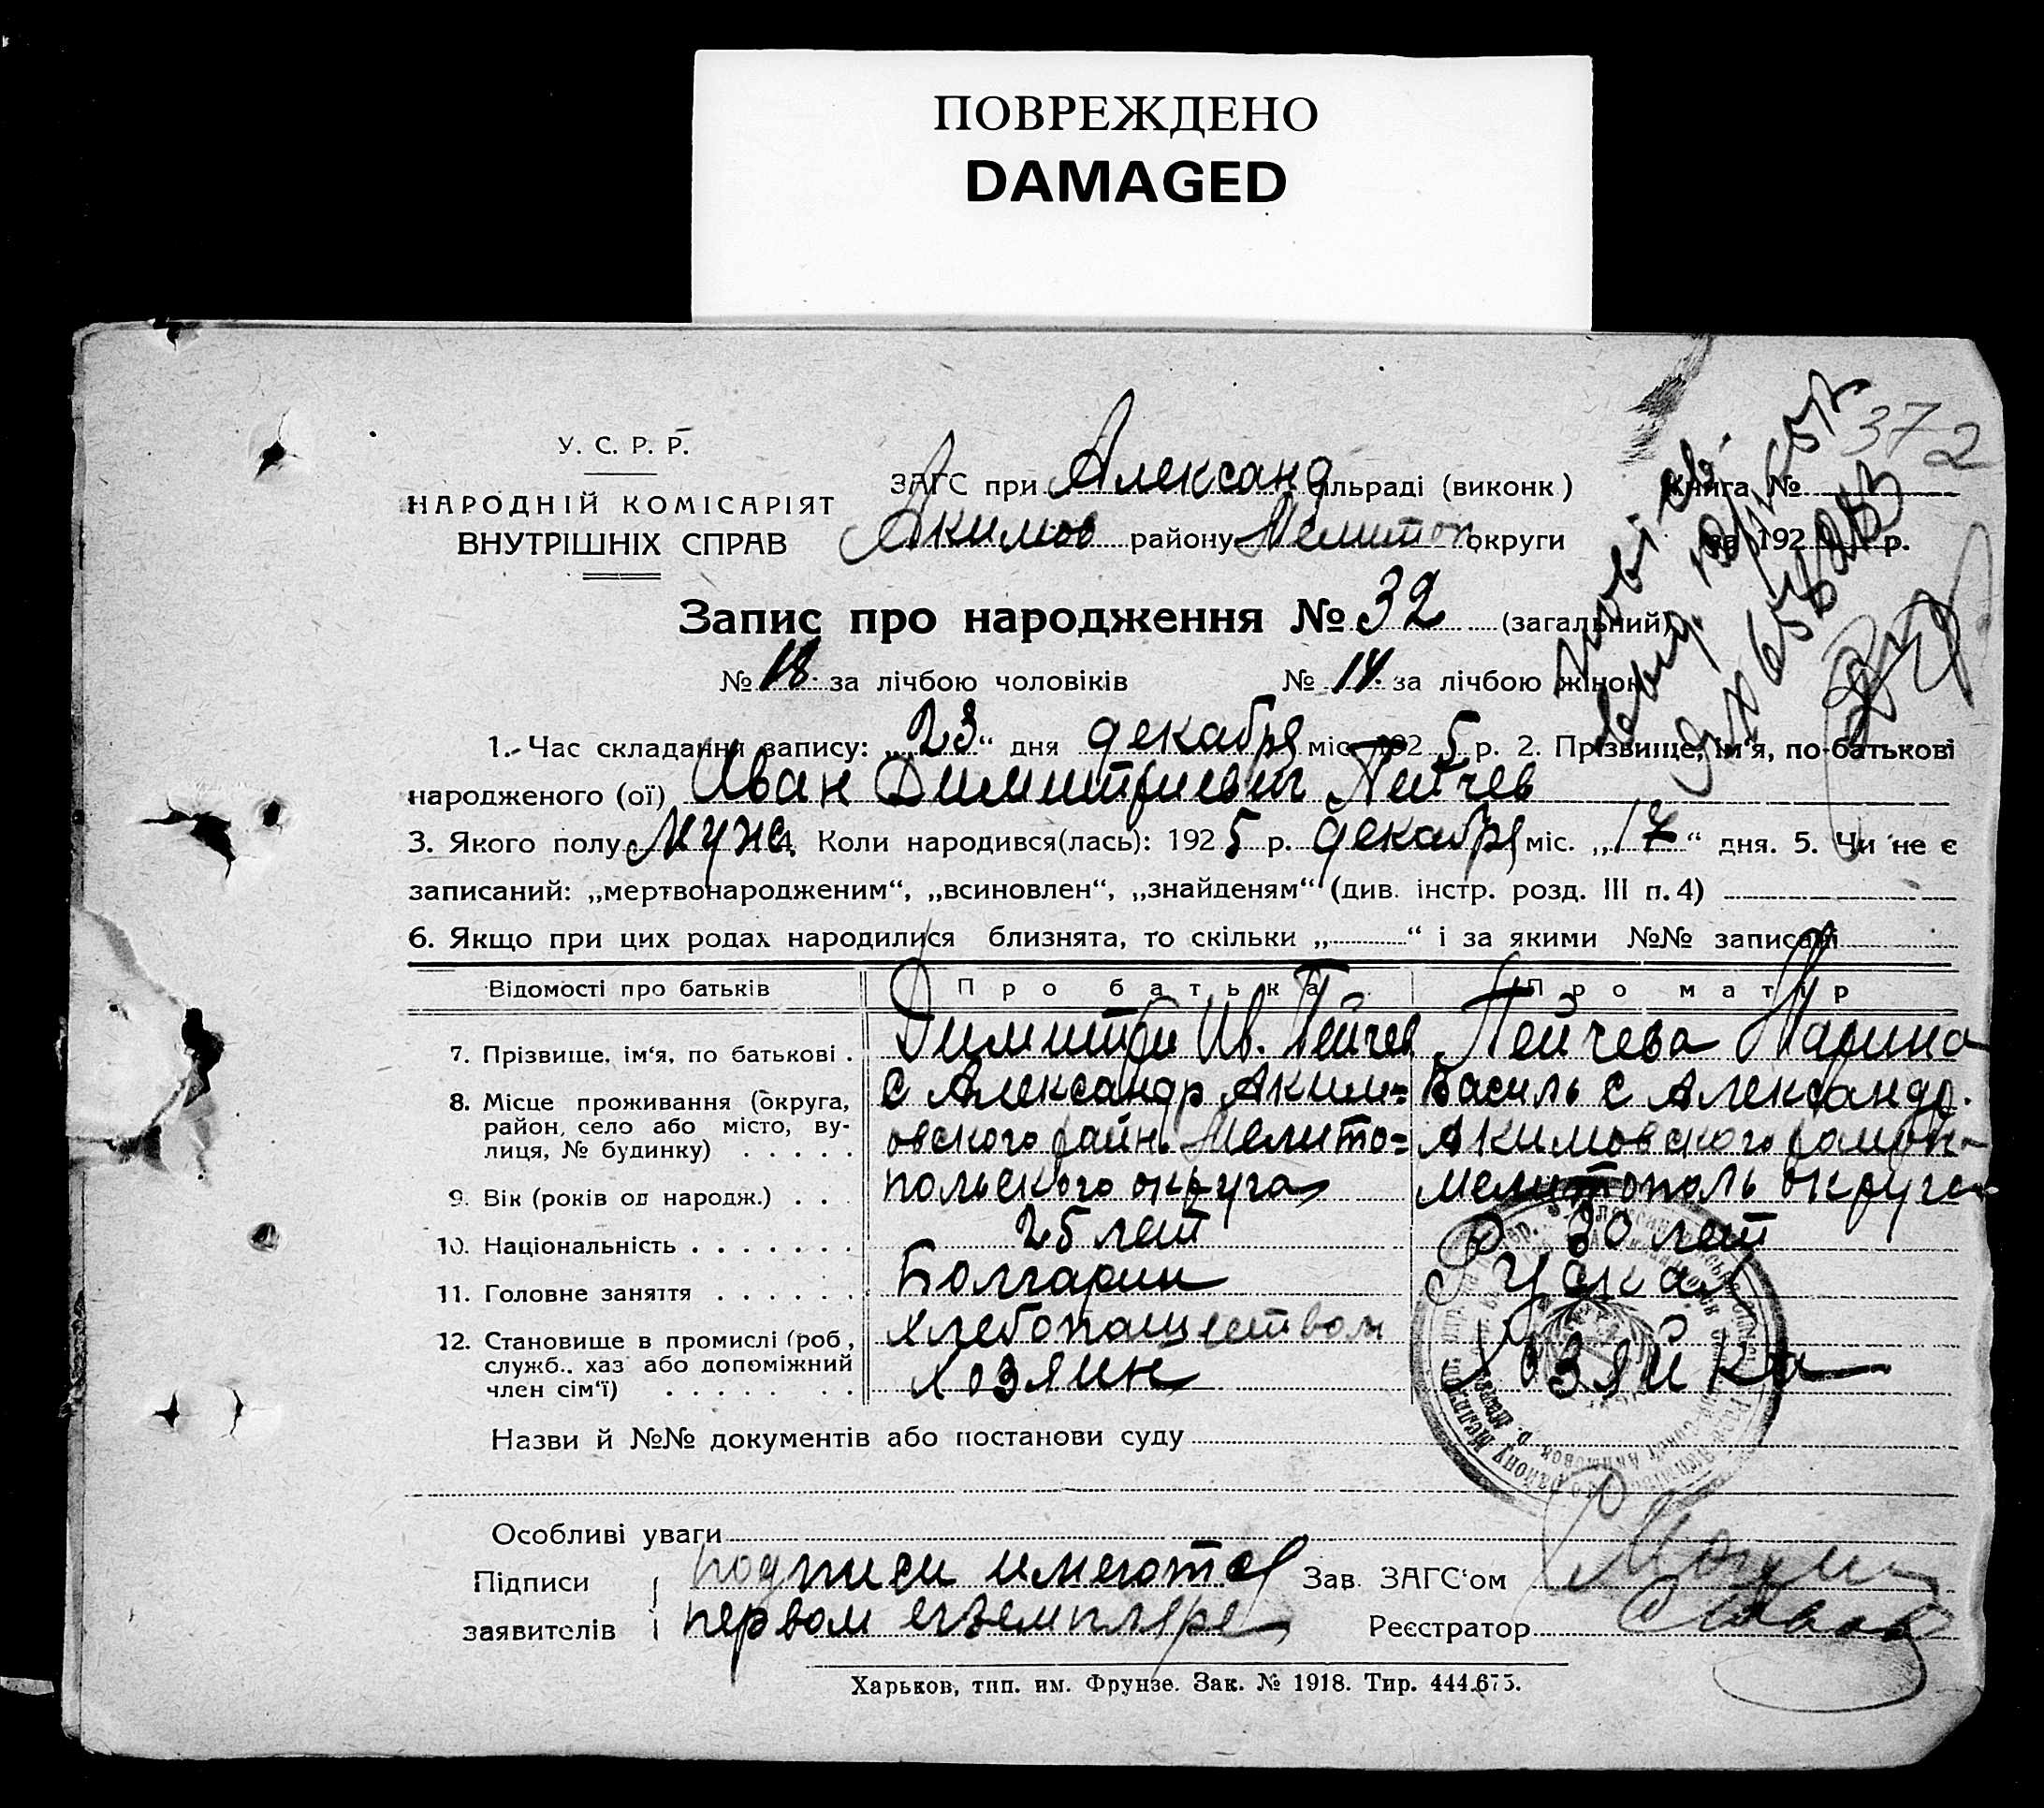 ПОВРЕЖДЕНО
DAMAGED
372
У. С. Р. Р.
НАРОДНІЙ КОМІСАРІЯТ
ВНУТРІШНІХ СПРАВ
ЗАГС при Александ сільраді (виконк)
Акимов району Мелитоп округи
Книга №
за 192 р.
Запис про народження № 32 (загальний)
№ 18. за лічбою чоловіків № 14. за лічбою жінок
1. Час складання запису: „23“ дня декабря міс. 1925 р. 2. Прізвище, ім‘я, по-батькові
народженого (ої) Иван Димитриевич Пейчев
3. Якого полу Муж. 4. Коли народився(лась): 1925 р. декабря міс. „17“ дня. 5. Чи не є
записаний: „мертвонародженим“, „всиновлен“, „знайденям“ (див. інстр. розд. III п. 4)
6. Якщо при цих родах народилися близнята, то скільки „ “ і за якими №№ записані
Відомості про батьків Про батька Про матір
7. Прізвище, ім‘я, по батькові . Димитри Ив. Пейчев Пейчева Марина
8. Місце проживання (округа, с Александр Аким= Василь с Александр.
район, село або місто, ву-
лиця, № будинку) . . . . . овского райн. Мелито= Акимовского
9. Вік (років од народж.) . . польского округа Мелитополь округа
10. Національність . . . . . . . 25 лет 30 лет
11. Головне заняття . . . . . . Болгарин Руская
12. Становище в промислі (роб, хлебопашеством
служб., хаз або допоміжний хозяин Хозяйка
член сім‘ї) . . . . . . .
Назви й №№ документів або постанови суду
Особливі уваги
Підписи подписи имеютов Зав. ЗАГС‘ом
заявителів первом егземпляре Реєстратор
Харьков, тип. им. Фрунзе. Зак. № 1918. Тир. 444.675.